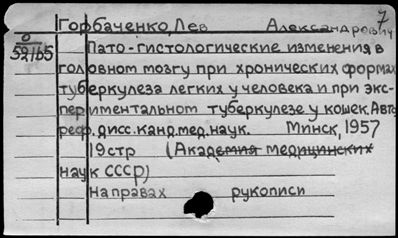 7
Горбаченко, Лев Александрович
О
52165
Пато-гистологические изменения в
головном мозгу при хронических формах
туберкулеза легких у человека и при экс-
периментальном туберкулезе у кошек. Авто
реф. дисс. канд. мед. наук. Минск, 1957
19стр (Академия медицинских
наук СССР)
на правах рукописи